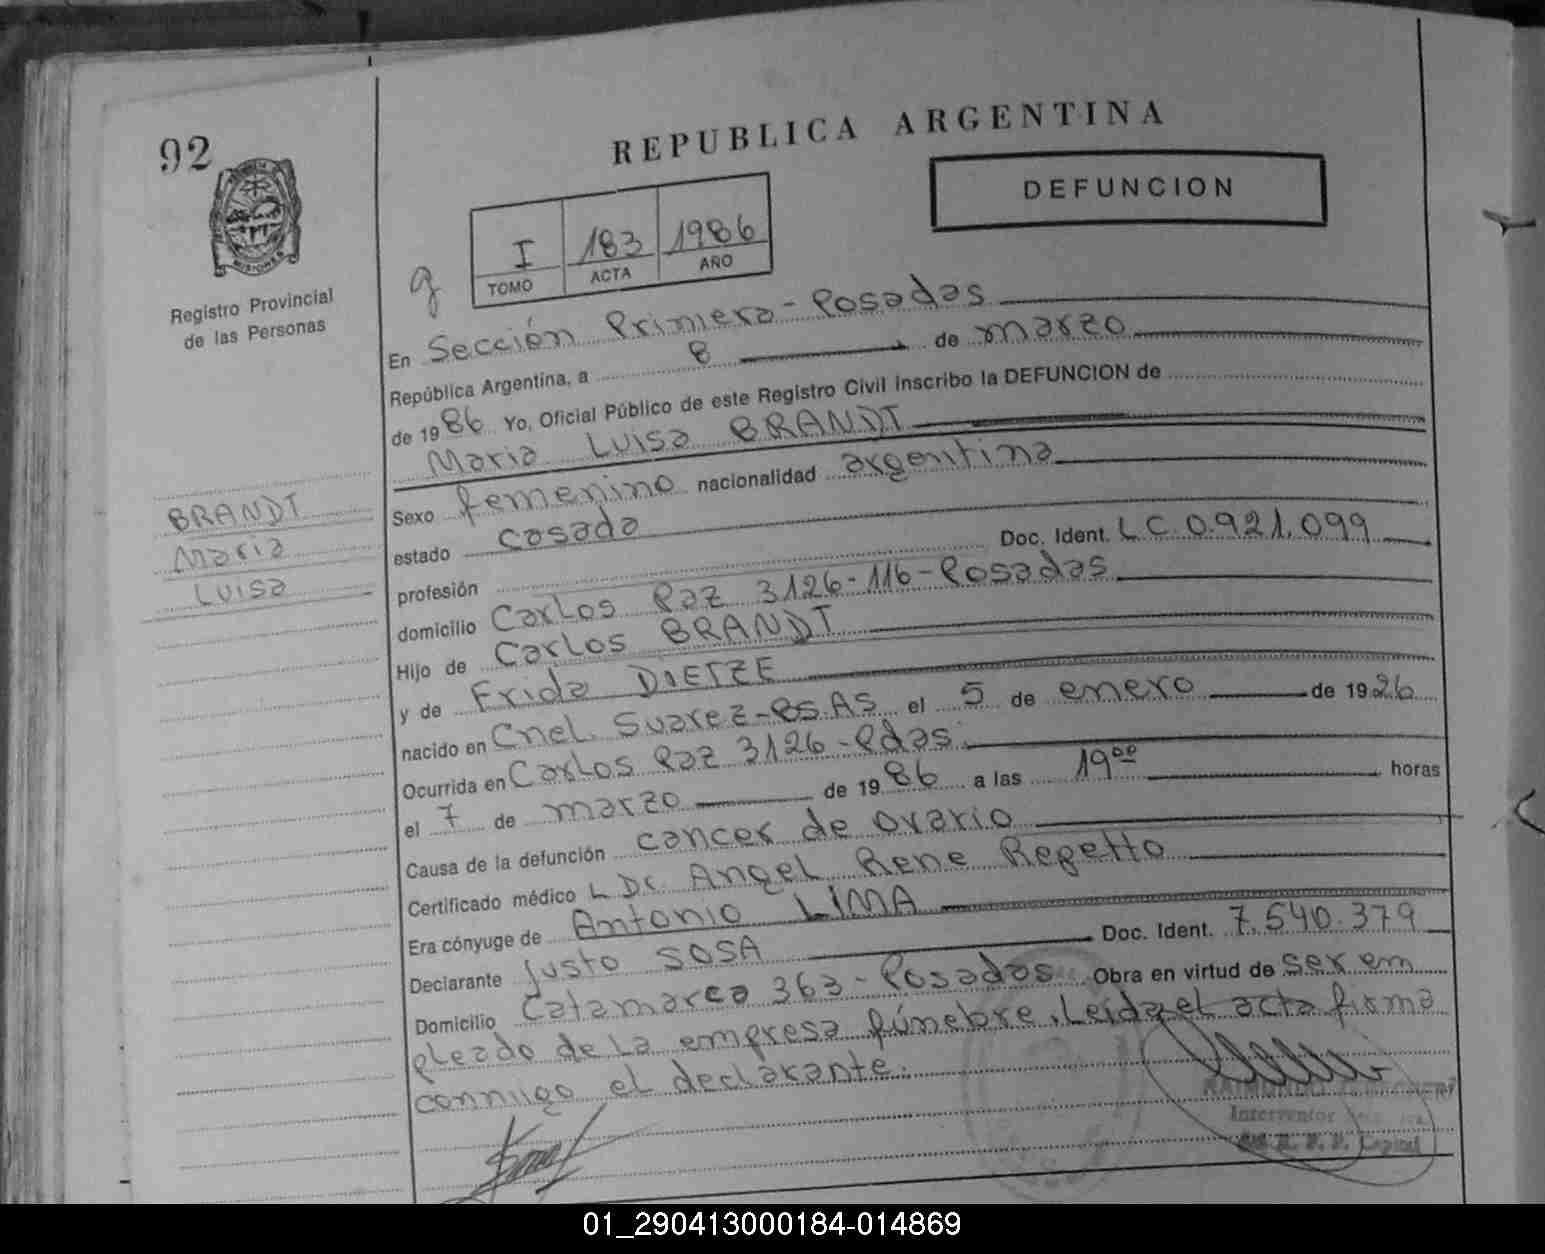 92
REPUBLICA ARGENTINA
DEFUNCION
MISIONES
Registro Provincial
de las Personas
I 183 1986
TOMO ACTA AÑO
En Sección Primera - Posadas
República Argentina, a 8 de marzo
de 1986 Yo, Oficial Público de este Registro Civil inscribo la DEFUNCION de
Maria Luisa BRANDT
BRANDT
Maria
Luisa
Sexo femenino nacionalidad argentina
estado casada
profesión Doc. Ident. LC 0.921.099
domicilio Carlos Paz 3126-116-Posadas
Hijo de Carlos BRANDT
y de Frida DIETZE
nacido en Cnel. Suarez-BsAs el 5 de enero de 1926
Ocurrida en Carlos Paz 3126-Pdas.
el 7 de marzo de 1986 a las 19⁰⁰ horas
Causa de la defunción cancer de ovario
Certificado médico L Dr. Angel Rene Repetto
Era cónyuge de Antonio LIMA
Declarante Justo SOSA Doc. Ident. 7.540.379
Domicilio Catamarca 363-Posadas Obra en virtud de ser em
pleado de la empresa fúnebre. Leida el acta firma
conmigo el declarante.
Interventor
Capital
01_290413000184-014869